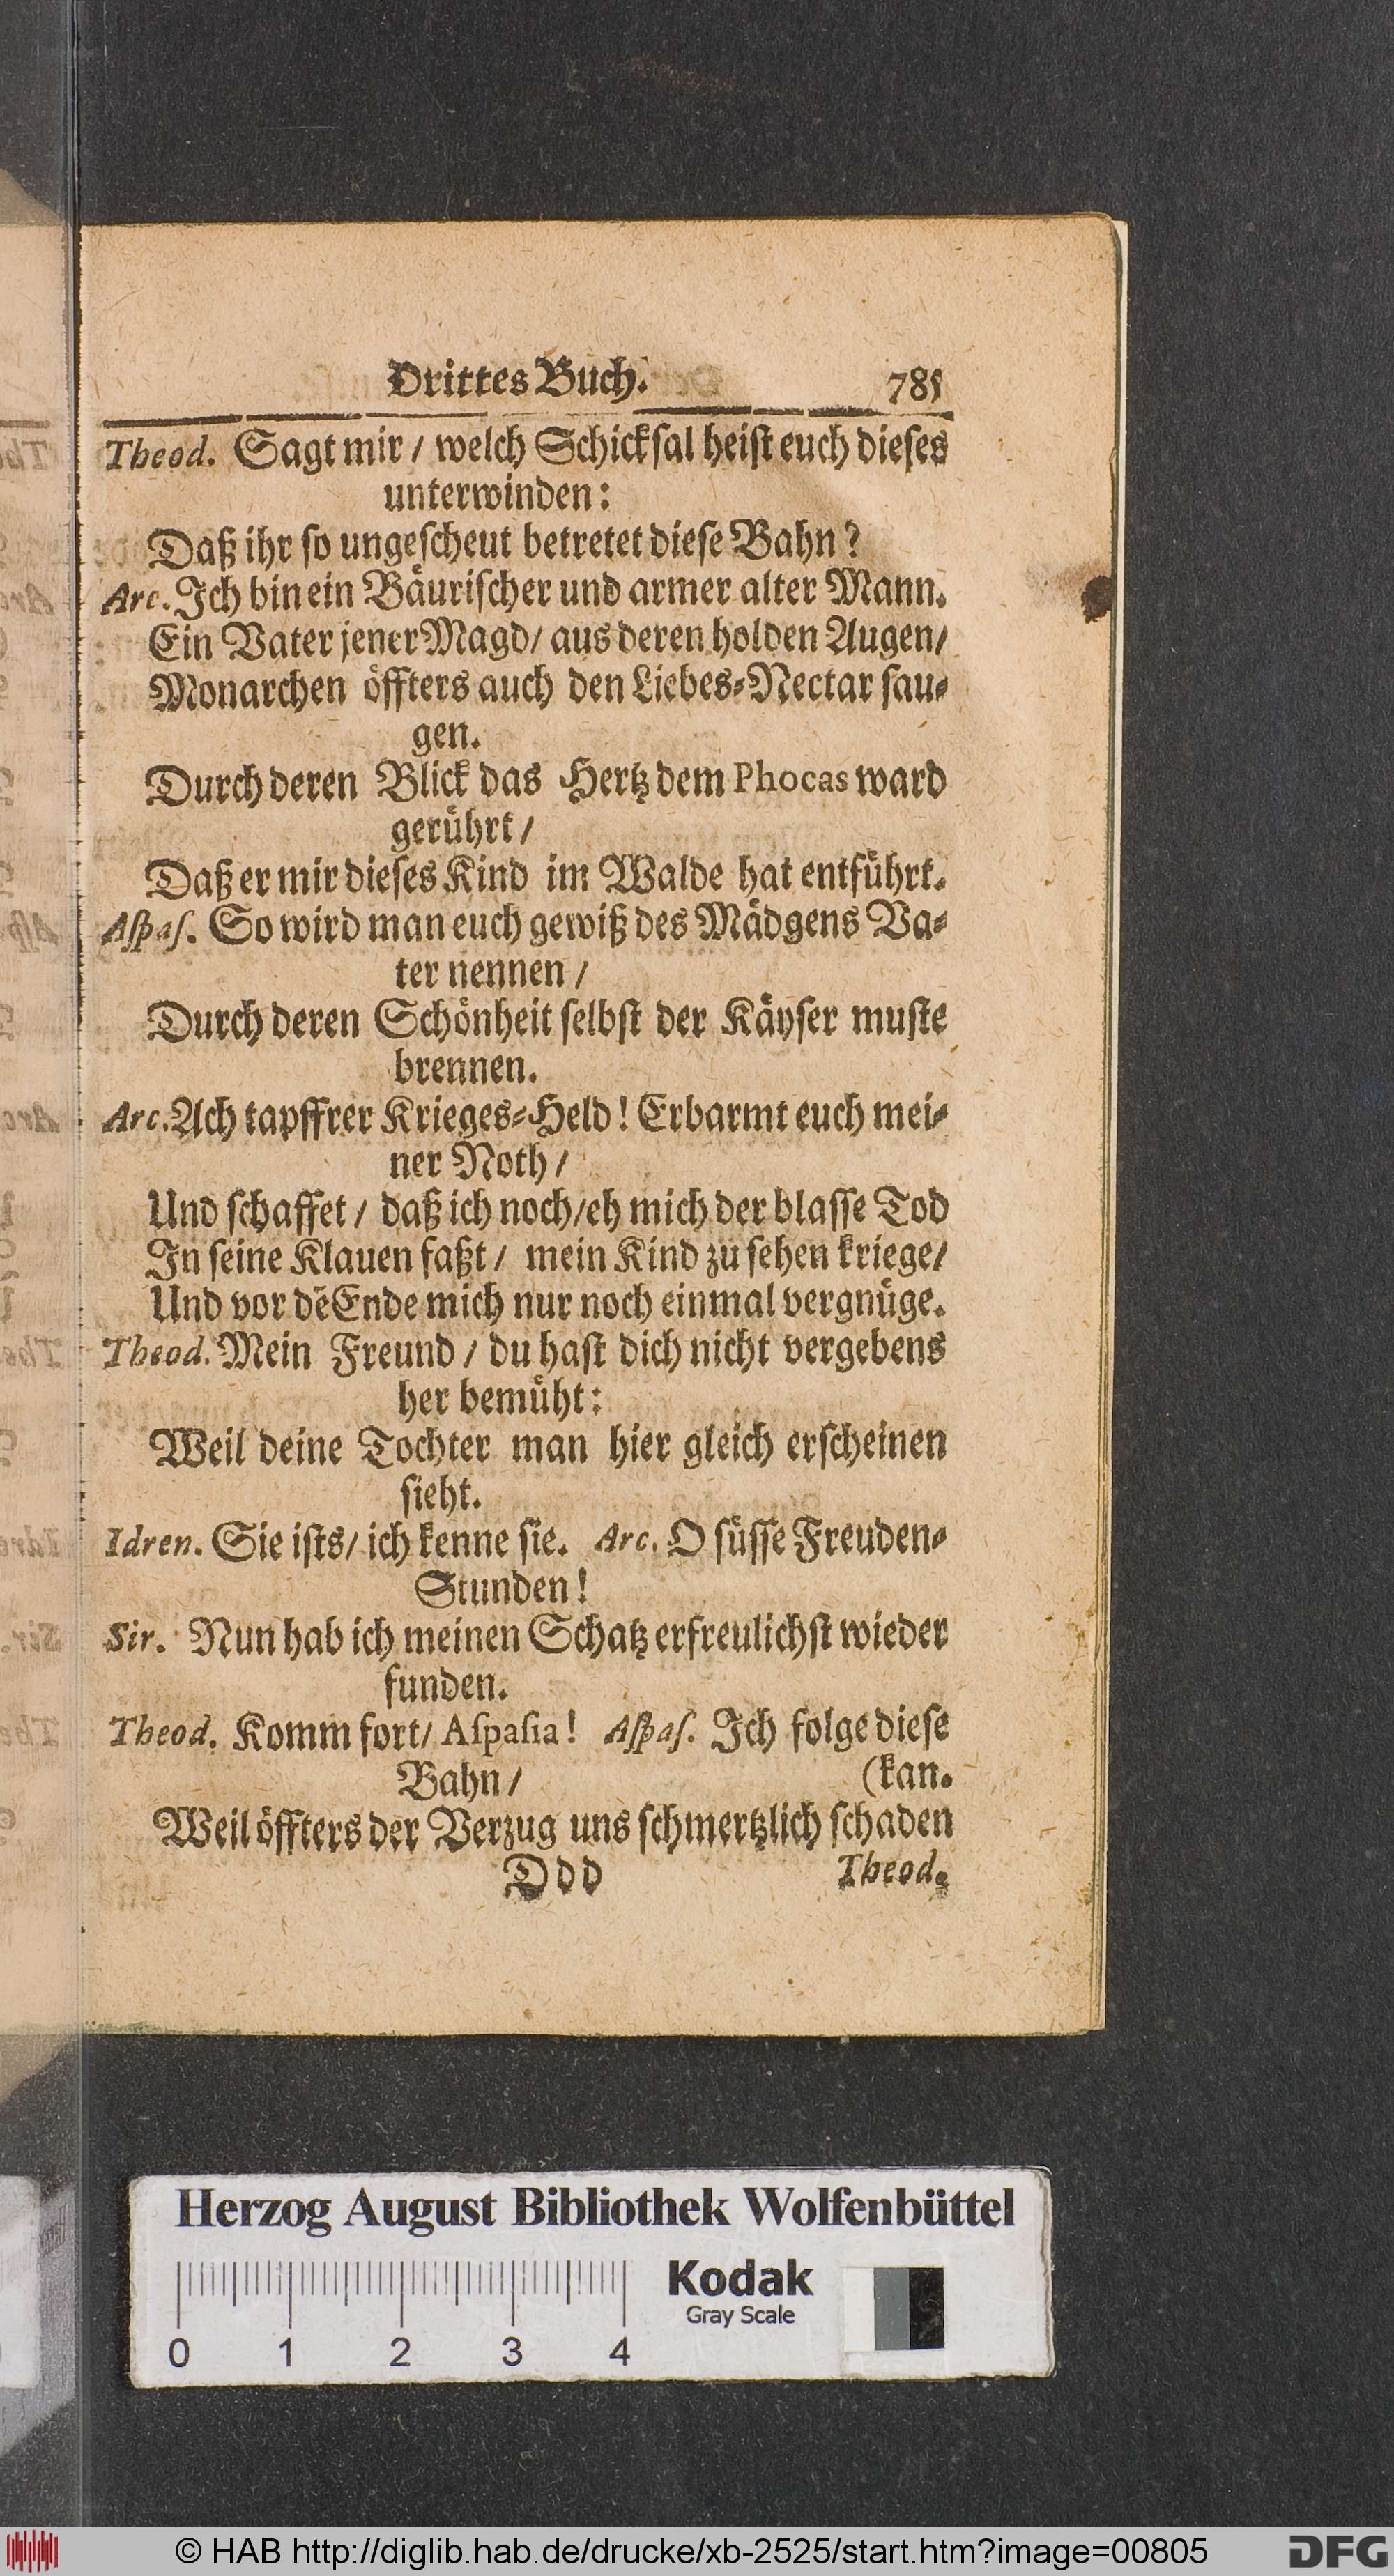 Drittes Buch. 785
Theod. Sagt mir / welch Schickſal heiſt euch dieſes
unterwinden:
Daß ihr ſo ungeſcheut betretet dieſe Bahn?
Arc. Ich bin ein Bäuriſcher und armer alter Mann.
Ein Vater jener Magd/ aus deren holden Augen/
Monarchen öffters auch den Liebes-Nectar ſau-
gen.
Durch deren Blick das Hertz dem Phocas ward
gerührt /
Daß er mir dieſes Kind im Walde hat entführt.
Aſpaſ. So wird man euch gewiß des Mädgens Va-
ter nennen /
Durch deren Schönheit ſelbſt der Käyſer muſte
brennen.
Arc. Ach tapffrer Krieges-Held! Erbarmt euch mei-
ner Noth /
Und ſchaffet / daß ich noch/eh mich der blaſſe Tod
In ſeine Klauen faßt / mein Kind zu ſehen kriege/
Und vor dē Ende mich nur noch einmal vergnüge.
Theod. Mein Freund / du haſt dich nicht vergebens
her bemüht:
Weil deine Tochter man hier gleich erſcheinen
ſieht.
Idren. Sie iſts/ ich kenne ſie. Arc. O ſüſſe Freuden-
Stunden!
Sir. Nun hab ich meinen Schatz erfreulichſt wieder
funden.
Theod. Komm fort/ Aſpaſia! Aſpaſ. Ich folge dieſe
Bahn / (kan.
Weil öffters der Verzug uns ſchmertzlich ſchaden
Ddd Theod.
Herzog August Bibliothek Wolfenbüttel
Kodak
Gray Scale
0 1 2 3 4
© HAB http://diglib.hab.de/drucke/xb-2525/start.htm?image=00805 DFG